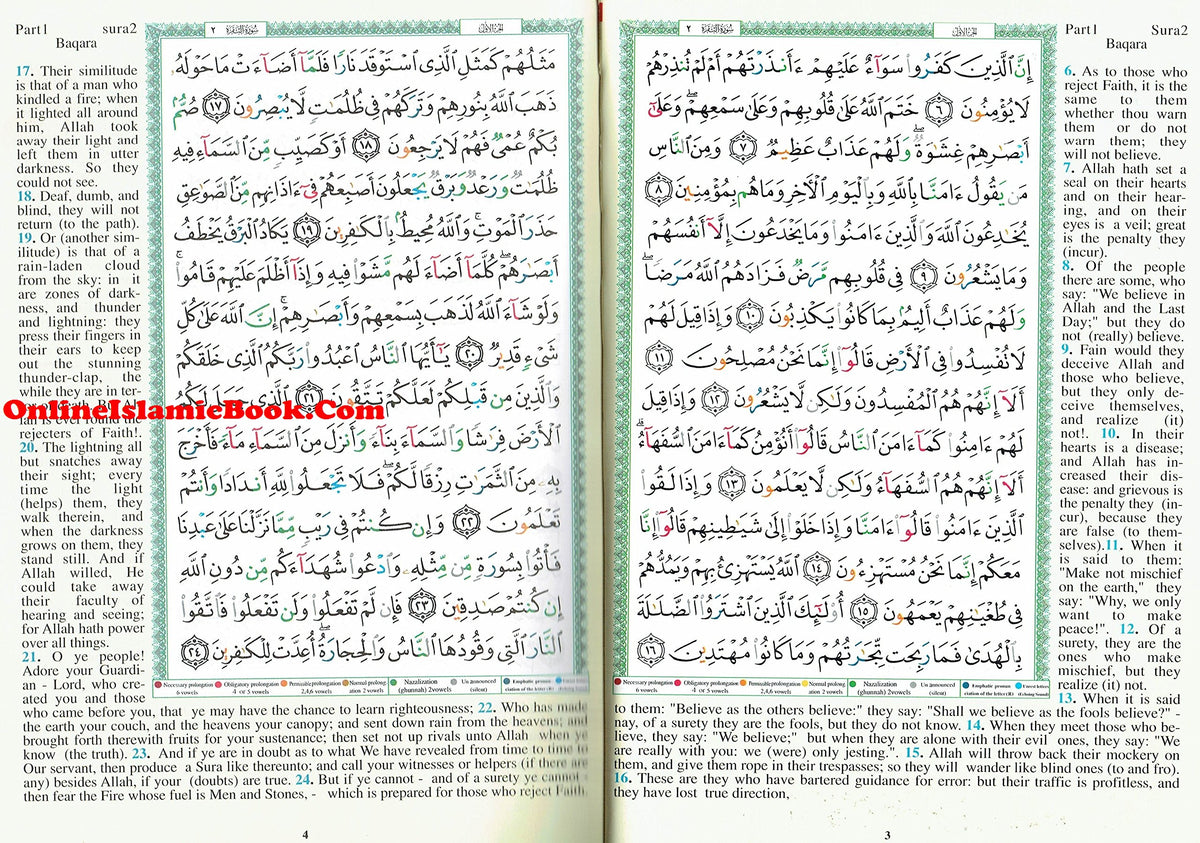 Part1 Sura2
Baqara
سُورَةُ البَقَرَةِ ٢
الجُزءُ الأوَّلُ
إِنَّ ٱلَّذِينَ كَفَرُوا۟ سَوَآءٌ عَلَيْهِمْ ءَأَنذَرْتَهُمْ أَمْ لَمْ تُنذِرْهُمْ
لَا يُؤْمِنُونَ ٦ خَتَمَ ٱللَّهُ عَلَىٰ قُلُوبِهِمْ وَعَلَىٰ سَمْعِهِمْ ۖ وَعَلَىٰٓ
أَبْصَـٰرِهِمْ غِشَـٰوَةٌ ۖ وَلَهُمْ عَذَابٌ عَظِيمٌ ٧ وَمِنَ ٱلنَّاسِ
مَن يَقُولُ ءَامَنَّا بِٱللَّهِ وَبِٱلْيَوْمِ ٱلْـَٔاخِرِ وَمَا هُم بِمُؤْمِنِينَ ٨
يُخَـٰدِعُونَ ٱللَّهَ وَٱلَّذِينَ ءَامَنُوا۟ وَمَا يَخْدَعُونَ إِلَّآ أَنفُسَهُمْ
وَمَا يَشْعُرُونَ ٩ فِى قُلُوبِهِم مَّرَضٌ فَزَادَهُمُ ٱللَّهُ مَرَضًا ۖ
وَلَهُمْ عَذَابٌ أَلِيمٌۢ بِمَا كَانُوا۟ يَكْذِبُونَ ١٠ وَإِذَا قِيلَ لَهُمْ
لَا تُفْسِدُوا۟ فِى ٱلْأَرْضِ قَالُوٓا۟ إِنَّمَا نَحْنُ مُصْلِحُونَ ١١
أَلَآ إِنَّهُمْ هُمُ ٱلْمُفْسِدُونَ وَلَـٰكِن لَّا يَشْعُرُونَ ١٢ وَإِذَا قِيلَ
لَهُمْ ءَامِنُوا۟ كَمَآ ءَامَنَ ٱلنَّاسُ قَالُوٓا۟ أَنُؤْمِنُ كَمَآ ءَامَنَ ٱلسُّفَهَآءُ ۗ
أَلَآ إِنَّهُمْ هُمُ ٱلسُّفَهَآءُ وَلَـٰكِن لَّا يَعْلَمُونَ ١٣ وَإِذَا لَقُوا۟
ٱلَّذِينَ ءَامَنُوا۟ قَالُوٓا۟ ءَامَنَّا وَإِذَا خَلَوْا۟ إِلَىٰ شَيَـٰطِينِهِمْ قَالُوٓا۟ إِنَّا
مَعَكُمْ إِنَّمَا نَحْنُ مُسْتَهْزِءُونَ ١٤ ٱللَّهُ يَسْتَهْزِئُ بِهِمْ وَيَمُدُّهُمْ
فِى طُغْيَـٰنِهِمْ يَعْمَهُونَ ١٥ أُو۟لَـٰٓئِكَ ٱلَّذِينَ ٱشْتَرَوُا۟ ٱلضَّلَـٰلَةَ
بِٱلْهُدَىٰ فَمَا رَبِحَت تِّجَـٰرَتُهُمْ وَمَا كَانُوا۟ مُهْتَدِينَ ١٦
Necessary prolongation 6 vowels
Obligatory prolongation 4 or 5 vowels
Permissible prolongation 2,4,6 vowels
Normal prolongation 2 vowels
Nazalization (ghunnah) 2vowels
Un announced (silent)
6. As to those who
reject Faith, it is the
same to them
whether thou warn
them or do not
warn them; they
will not believe.
7. Allah hath set a
seal on their hearts
and on their hear-
ing, and on their
eyes is a veil; great
is the penalty they
(incur).
8. Of the people
there are some, who
say: "We believe in
Allah and the Last
Day;" but they do
not (really) believe.
9. Fain would they
deceive Allah and
those who believe,
but they only de-
ceive themselves,
and realize (it)
not!. 10. In their
hearts is a disease;
and Allah has in-
creased their dis-
ease: and grievous is
the penalty they (in-
cur), because they
are false (to them-
selves).11. When it
is said to them:
"Make not mischief
on the earth," they
say: "Why, we only
want to make
peace!". 12. Of a
surety, they are the
ones who make
mischief, but they
realize (it) not.
13. When it is said
to them: "Believe as the others believe:" they say: "Shall we believe as the fools believe?" -
nay, of a surety they are the fools, but they do not know. 14. When they meet those who be-
lieve, they say: "We believe;" but when they are alone with their evil ones, they say: "We
are really with you: we (were) only jesting.". 15. Allah will throw back their mockery on
them, and give them rope in their trespasses; so they will wander like blind ones (to and fro).
16. These are they who have bartered guidance for error: but their traffic is profitless, and
they have lost true direction,
3
Part1 sura2
Baqara
سُورَةُ البَقَرَةِ ٢
الجُزءُ الأوَّلُ
مَثَلُهُمْ كَمَثَلِ ٱلَّذِى ٱسْتَوْقَدَ نَارًا فَلَمَّآ أَضَآءَتْ مَا حَوْلَهُۥ
ذَهَبَ ٱللَّهُ بِنُورِهِمْ وَتَرَكَهُمْ فِى ظُلُمَـٰتٍ لَّا يُبْصِرُونَ ١٧ صُمٌّۢ
بُكْمٌ عُمْىٌ فَهُمْ لَا يَرْجِعُونَ ١٨ أَوْ كَصَيِّبٍ مِّنَ ٱلسَّمَآءِ فِيهِ
ظُلُمَـٰتٌ وَرَعْدٌ وَبَرْقٌ يَجْعَلُونَ أَصَـٰبِعَهُمْ فِىٓ ءَاذَانِهِم مِّنَ ٱلصَّوَٰعِقِ
حَذَرَ ٱلْمَوْتِ ۚ وَٱللَّهُ مُحِيطٌۢ بِٱلْكَـٰفِرِينَ ١٩ يَكَادُ ٱلْبَرْقُ يَخْطَفُ
أَبْصَـٰرَهُمْ ۖ كُلَّمَآ أَضَآءَ لَهُم مَّشَوْا۟ فِيهِ وَإِذَآ أَظْلَمَ عَلَيْهِمْ قَامُوا۟ ۚ
وَلَوْ شَآءَ ٱللَّهُ لَذَهَبَ بِسَمْعِهِمْ وَأَبْصَـٰرِهِمْ ۚ إِنَّ ٱللَّهَ عَلَىٰ كُلِّ
شَىْءٍ قَدِيرٌ ٢٠ يَـٰٓأَيُّهَا ٱلنَّاسُ ٱعْبُدُوا۟ رَبَّكُمُ ٱلَّذِى خَلَقَكُمْ
وَٱلَّذِينَ مِن قَبْلِكُمْ لَعَلَّكُمْ تَتَّقُونَ ٢١ ٱلَّذِى جَعَلَ لَكُمُ
ٱلْأَرْضَ فِرَٰشًا وَٱلسَّمَآءَ بِنَآءً وَأَنزَلَ مِنَ ٱلسَّمَآءِ مَآءً فَأَخْرَجَ
بِهِۦ مِنَ ٱلثَّمَرَٰتِ رِزْقًا لَّكُمْ ۖ فَلَا تَجْعَلُوا۟ لِلَّهِ أَندَادًا وَأَنتُمْ
تَعْلَمُونَ ٢٢ وَإِن كُنتُمْ فِى رَيْبٍ مِّمَّا نَزَّلْنَا عَلَىٰ عَبْدِنَا
فَأْتُوا۟ بِسُورَةٍ مِّن مِّثْلِهِۦ وَٱدْعُوا۟ شُهَدَآءَكُم مِّن دُونِ ٱللَّهِ
إِن كُنتُمْ صَـٰدِقِينَ ٢٣ فَإِن لَّمْ تَفْعَلُوا۟ وَلَن تَفْعَلُوا۟ فَٱتَّقُوا۟
ٱلنَّارَ ٱلَّتِى وَقُودُهَا ٱلنَّاسُ وَٱلْحِجَارَةُ ۖ أُعِدَّتْ لِلْكَـٰفِرِينَ ٢٤
Necessary prolongation 6 vowels
Obligatory prolongation 4 or 5 vowels
Permissible prolongation 2,4,6 vowels
Normal prolongation 2 vowels
Nazalization (ghunnah) 2vowels
Un announced (silent)
17. Their similitude
is that of a man who
kindled a fire; when
it lighted all around
him, Allah took
away their light and
left them in utter
darkness. So they
could not see.
18. Deaf, dumb, and
blind, they will not
return (to the path).
19. Or (another sim-
ilitude) is that of a
rain-laden cloud
from the sky: in it
are zones of dark-
ness, and thunder
and lightning: they
press their fingers in
their ears to keep
out the stunning
thunder-clap, the
while they are in ter-
OnlineIslamicBook.Com
lah is ever round the
rejecters of Faith!.
20. The lightning all
but snatches away
their sight; every
time the light
(helps) them, they
walk therein, and
when the darkness
grows on them, they
stand still. And if
Allah willed, He
could take away
their faculty of
hearing and seeing;
for Allah hath power
over all things.
21. O ye people!
Adore your Guardi-
an - Lord, who cre-
ated you and those
who came before you, that ye may have the chance to learn righteousness; 22. Who has made
the earth your couch, and the heavens your canopy; and sent down rain from the heavens; and
brought forth therewith fruits for your sustenance; then set not up rivals unto Allah when ye
know (the truth). 23. And if ye are in doubt as to what We have revealed from time to time to
Our servant, then produce a Sura like thereunto; and call your witnesses or helpers (if there are
any) besides Allah, if your (doubts) are true. 24. But if ye cannot - and of a surety ye cannot -
then fear the Fire whose fuel is Men and Stones, - which is prepared for those who reject Faith.
4